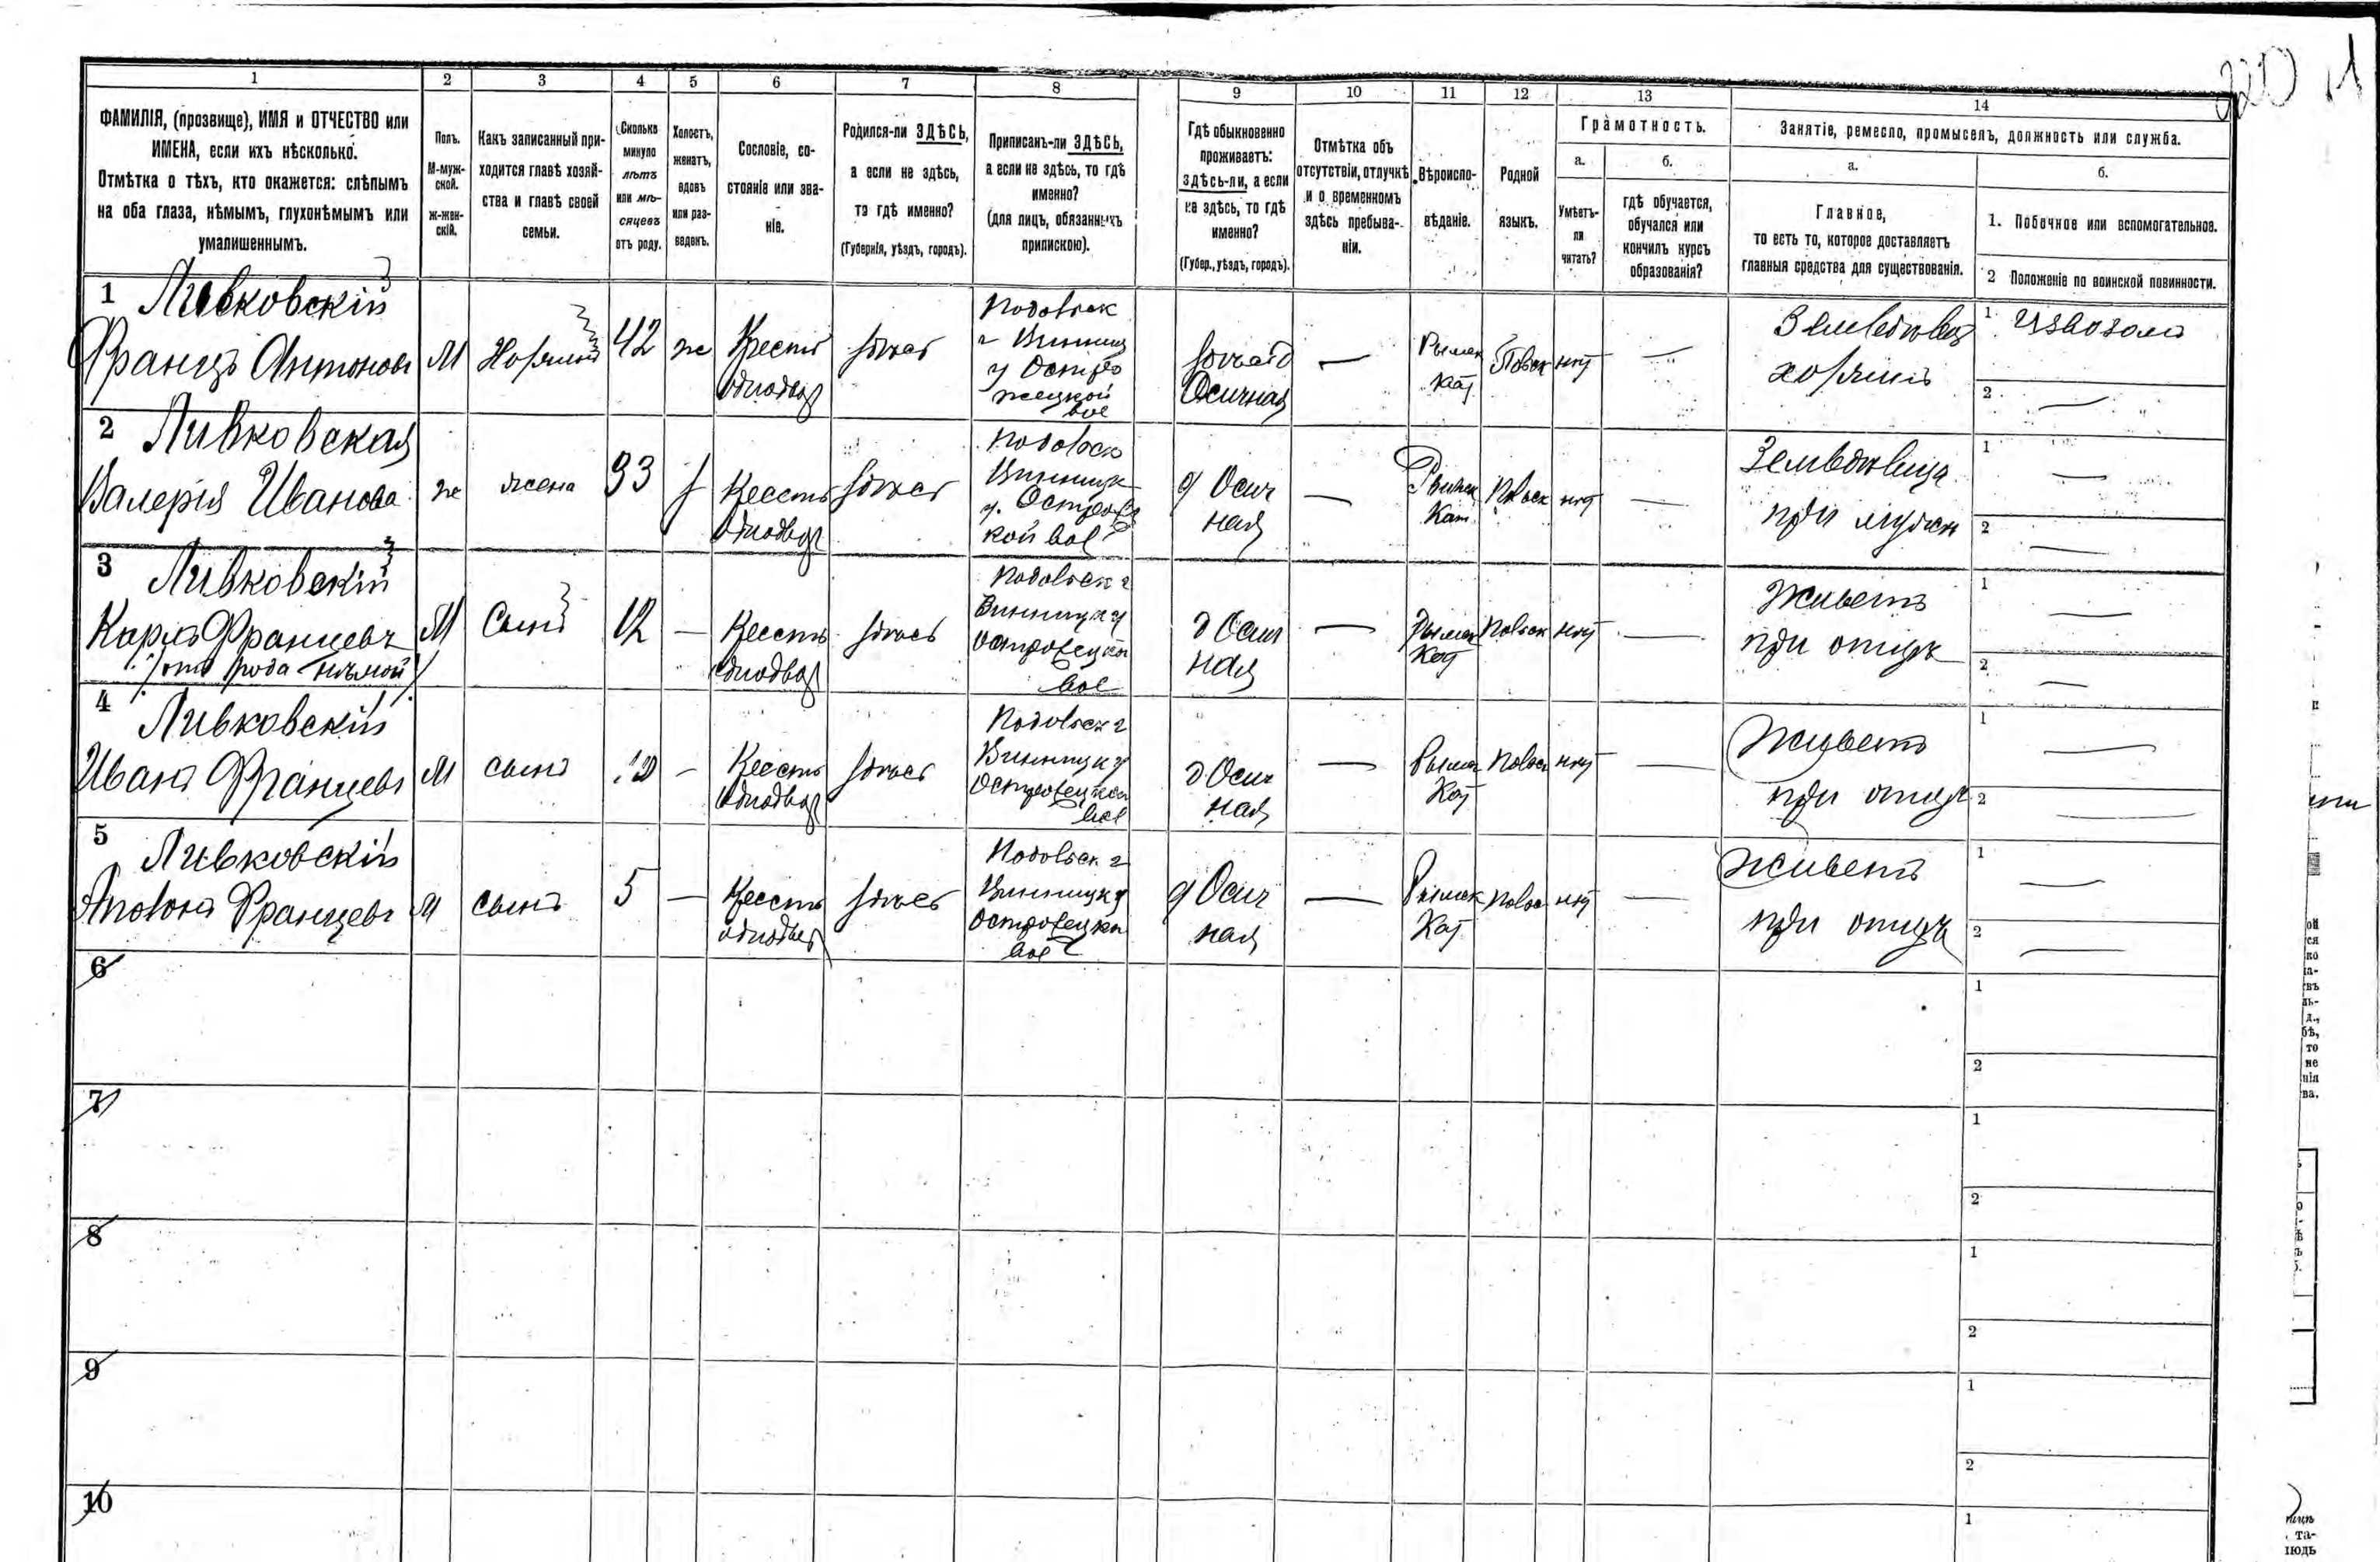 220
1 2 3 4 5 6 7 8 9 10 11 12 13 14
ФАМИЛІЯ, (прозвище), ИМЯ и ОТЧЕСТВО или
ИМЕНА, если ихъ нѣсколько.
Отмѣтка о тѣхъ, кто окажется: слѣпымъ
на оба глаза, нѣмымъ, глухонѣмымъ или
умалишеннымъ.
Полъ.
М-муж-
ской.
ж-жен-
скій.
Какъ записанный при-
ходится главѣ хозяй-
ства и главѣ своей
семьи.
Сколько
минуло
лѣтъ
или мѣ-
сяцевъ
отъ роду.
Холостъ,
женатъ,
вдовъ
или раз-
веденъ.
Сословіе, со-
стояніе или зва-
ніе.
Родился-ли ЗДѢСЬ,
а если не здѣсь,
то гдѣ именно?
(Губернія, уѣздъ, городъ).
Приписанъ-ли ЗДѢСЬ,
а если не здѣсь, то гдѣ
именно?
(для лицъ, обязанныхъ
припискою).
Гдѣ обыкновенно
проживаетъ:
ЗДѢСЬ-ли, а если
не здѣсь, то гдѣ
именно?
(Губер., уѣздъ, городъ).
Отмѣтка объ
отсутствіи, отлучкѣ
и о временномъ
здѣсь пребыва-
ніи.
Вѣроиспо-
вѣданіе.
Родной
языкъ.
Грамотность.
а.
Умѣетъ-
ли
читать?
б.
гдѣ обучается,
обучался или
кончилъ курсъ
образованія?
Занятіе, ремесло, промыселъ, должность или служба.
а.
Главное,
то есть то, которое доставляетъ
главныя средства для существованія.
б.
1. Побочное или вспомогательное.
2 Положеніе по воинской повинности.
1 Ливковскій
Францъ Антоновъ
М
Хозяинъ
42
ж
Крестъ
однодвор
здѣсь
Подольск
г Винниц
у Остро
жецкой
вол
Осичная
—
Римск
Кат
Польск
нѣт
—
Землевлад
хозяинъ
1 Извозомъ
2 —
2 Ливковская
Валерія Иванова
ж
жена
33
з
Крестъ
однодвор
здѣсь
Подольск
Винницк
у.
кой вол
д Осич
ная
—
Римск
Кат
Польск
нѣт
—
при мужѣ
1 —
2 —
3 Ливковскій
Карлъ Францевъ
/отъ рода нѣмой/
М
Сынъ
12
—
Крестъ
однодвор
здѣсь
Подольск г
Винницк у
вол
д Осич
ная
—
Римск
Кат
Польск
нѣт
—
Живетъ
при отцѣ
1 —
2 —
4 Ливковскій
Иванъ Францевъ
М
сынъ
10
—
Крестъ
однодвор
здѣсь
Подольск г
Винницк у
вол
д Осич
ная
—
Римск
Кат
Польск
нѣт
—
Живетъ
при отцѣ
1 —
2 —
5 Ливковскій
Францевъ
М
сынъ
5
—
Крестъ
однодвор
здѣсь
Подольск г
Винницк у
вол
д Осич
ная
—
Римск
Кат
Польск
нѣт
—
Живетъ
при отцѣ
1 —
2 —
6
1
2
7
1
2
8
1
2
9
1
2
10
1